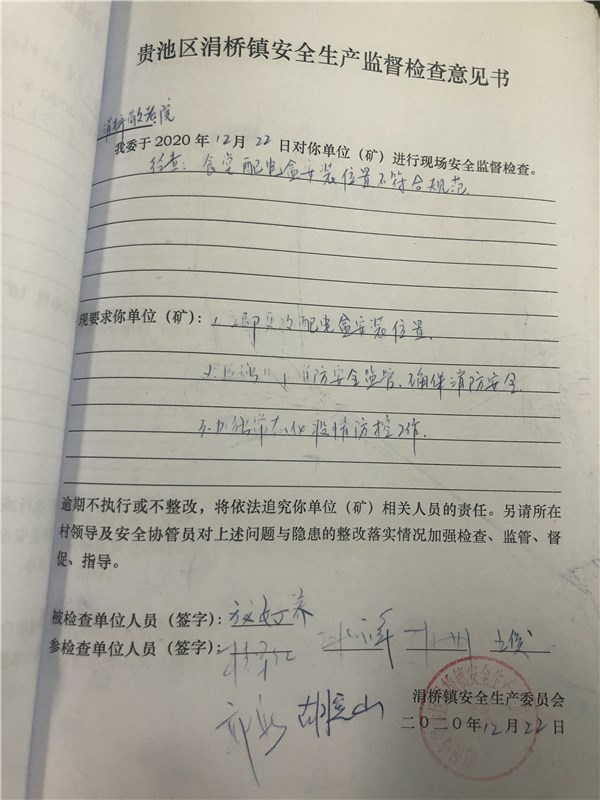 贵池区涓桥镇安全生产监督检查意见书
涓桥敬老院
我委于2020年12月22日对你单位(矿)进行现场安全监督检查。
检查:食堂配电盒安装位置不符合规范
现要求你单位(矿):1、立即更改配电盒安装位置.
2、加强 消防安全监管、确保消防安全
3.加强常态化疫情防控工作.
逾期不执行或不整改,将依法追究你单位(矿)相关人员的责任。另请所在
村领导及安全协管员对上述问题与隐患的整改落实情况加强检查、监管、督
促、指导。
被检查单位人员(签字):
参检查单位人员(签字):
涓桥镇安全生产委员会
二〇二〇年12月22日